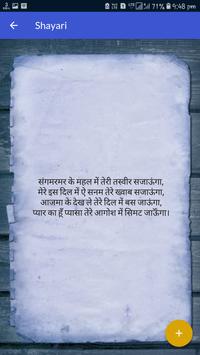 71% 5:48 pm
Shayari
संगमरमर के महल में तेरी तस्वीर सजाऊंगा,
मेरे इस दिल में ऐ सनम तेरे ख्वाब सजाऊंगा,
आजमा के देख ले तेरे दिल में बस जाऊंगा,
प्यार का हूँ प्यासा तेरे आगोश में सिमट जाऊँगा।
+